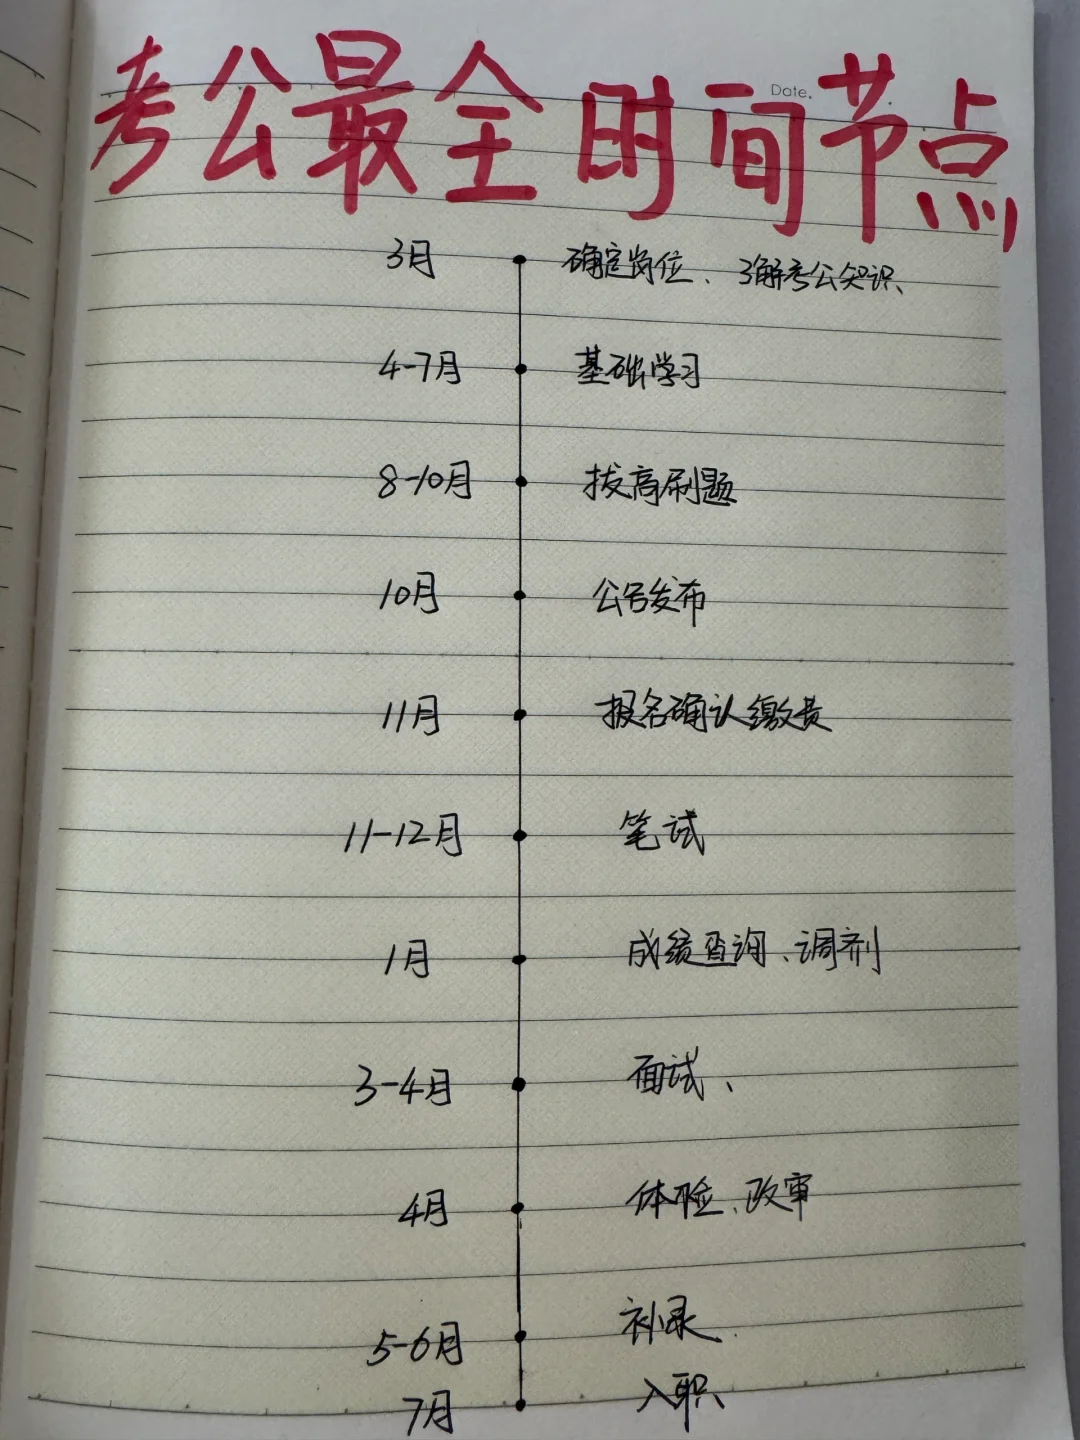 考公最全时间节点
Date.
3月 确定岗位、了解考公知识、
4-7月 基础学习
8-10月 拔高刷题
10月 公告发布
11月 报名确认缴费
11-12月 笔试
1月 成绩查询、调剂
3-4月 面试、
4月 体检、政审
5-6月 补录
7月 入职